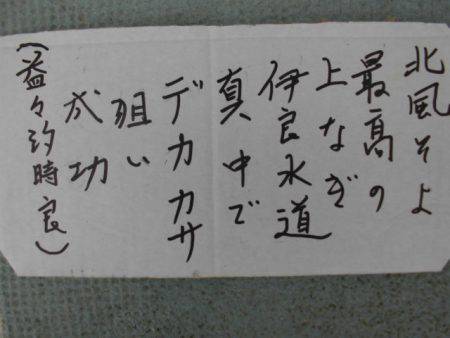 北風そよ
最高の
上なぎ
伊良水道
真中で
デカカサ
狙い
成功
(益々汐時良)